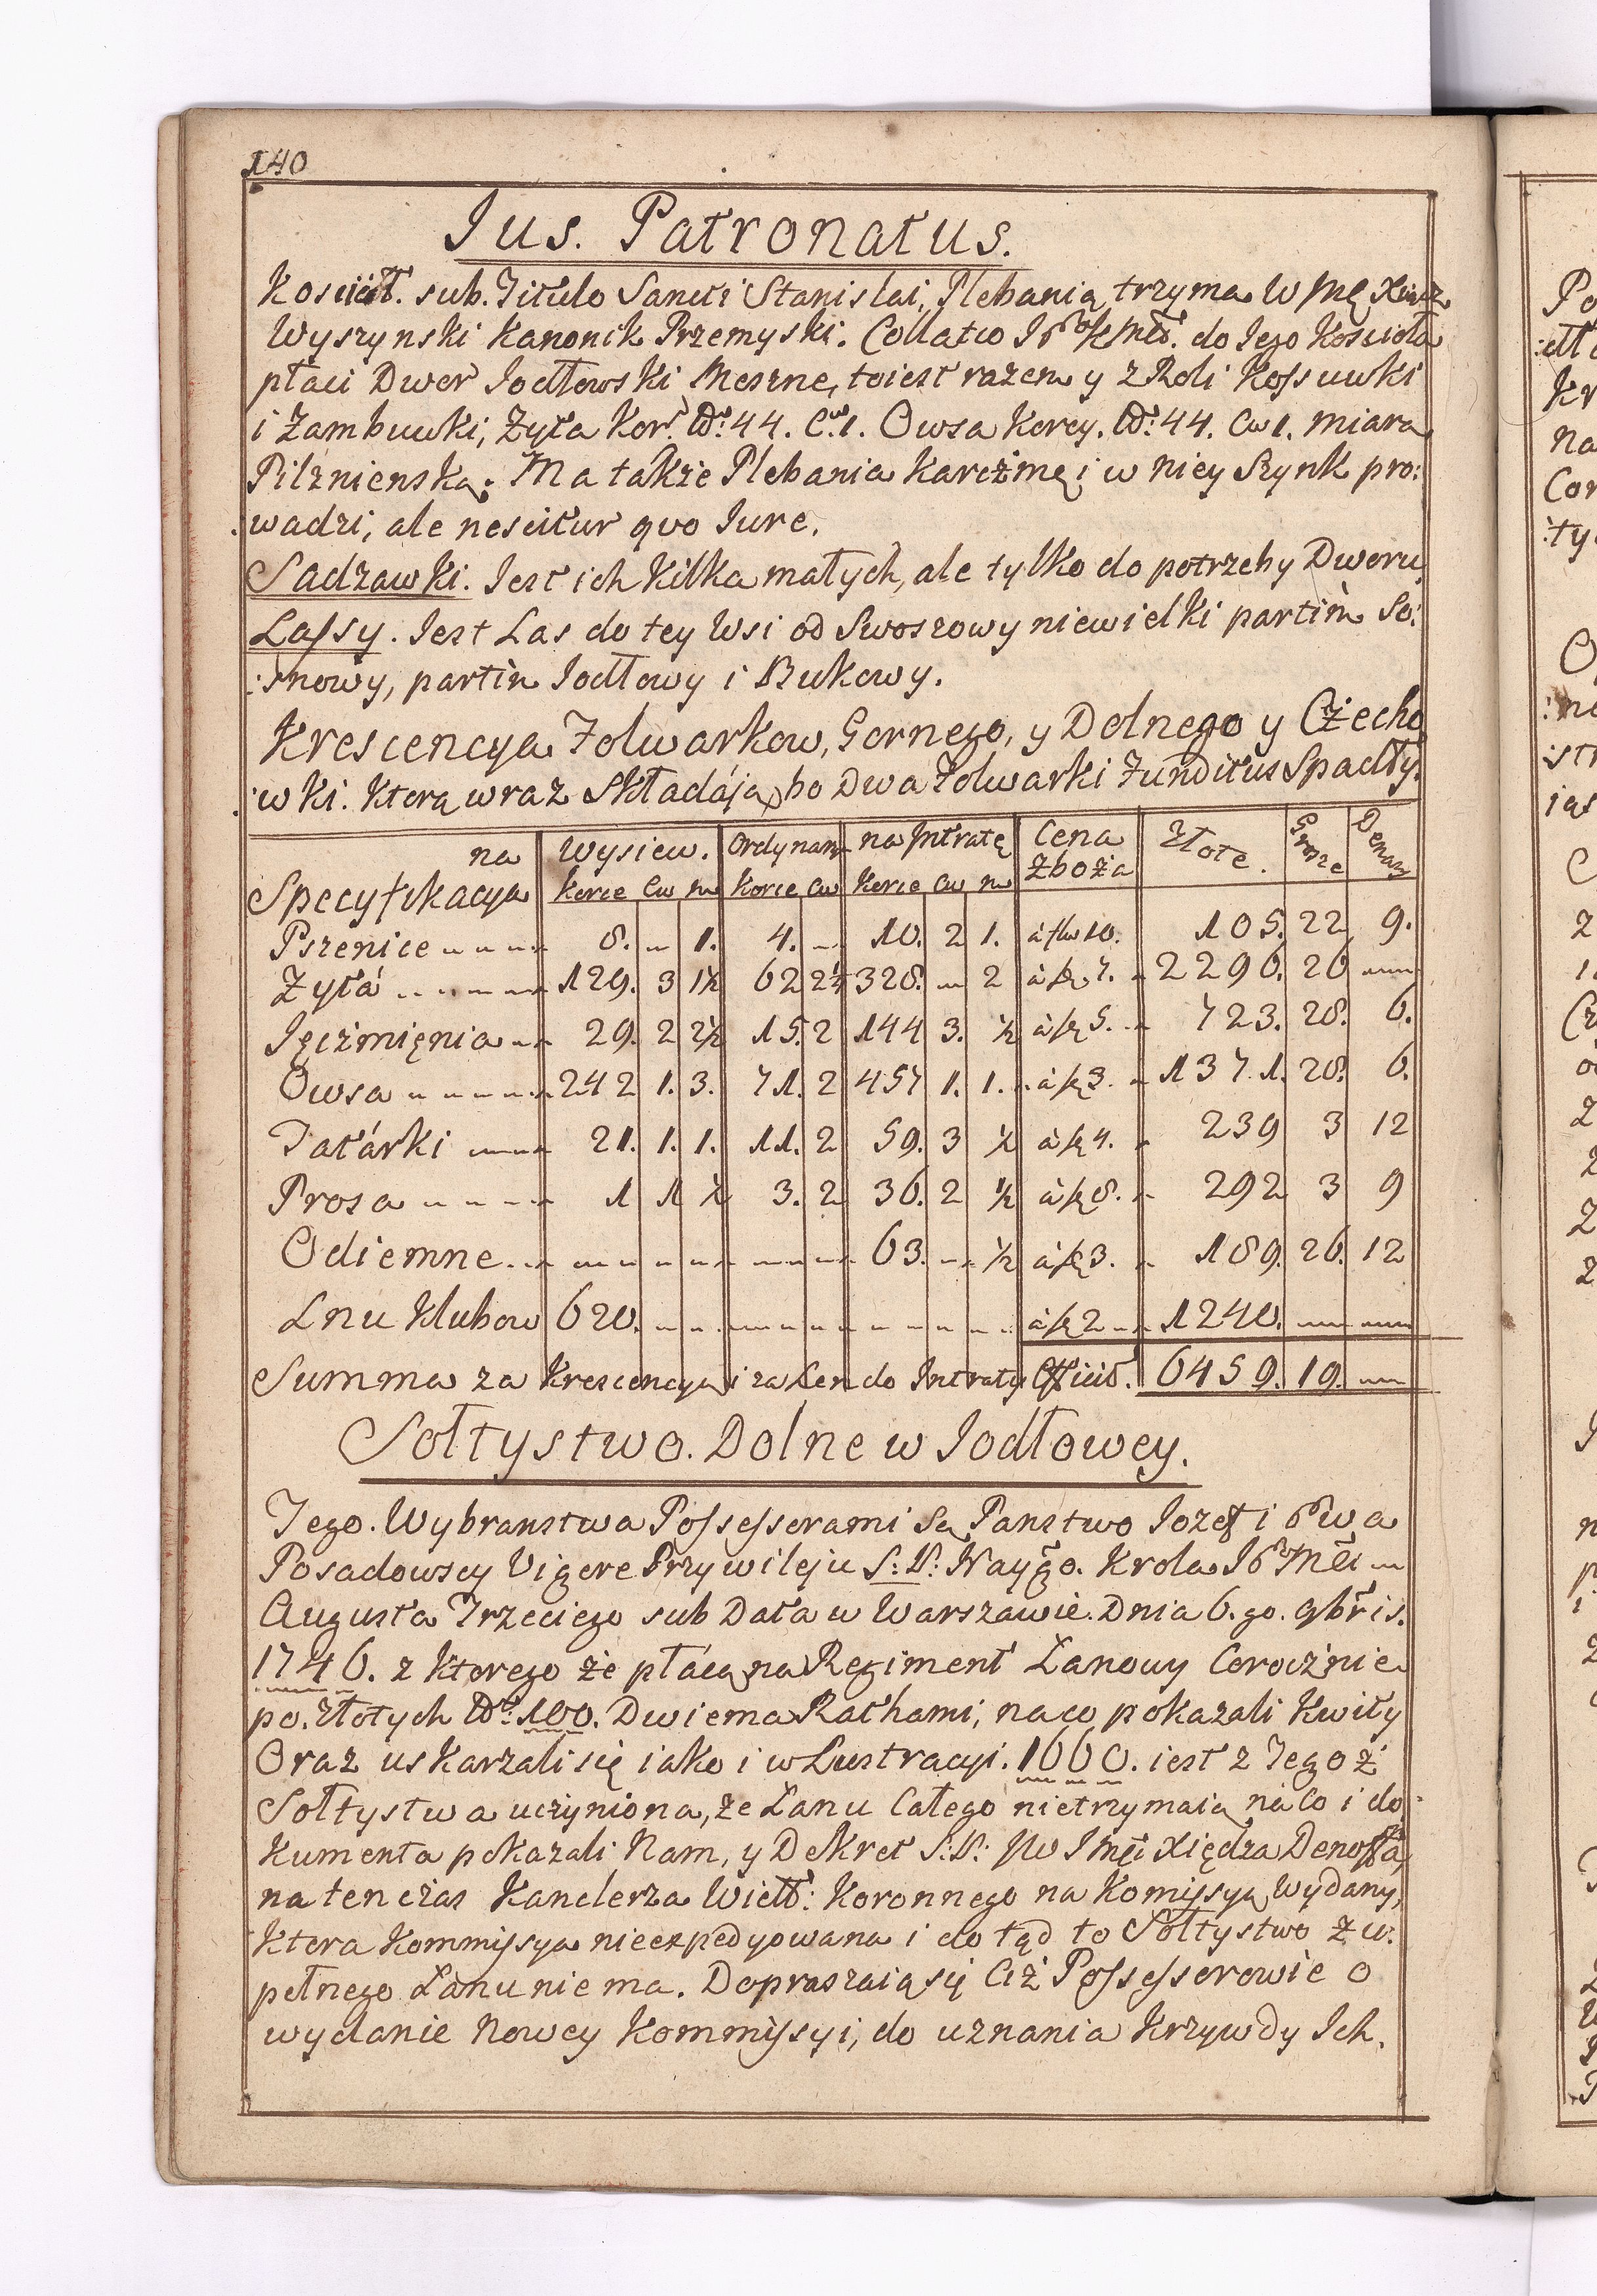 140
Ius. Patronatus.
Kosciół. sub. Titulo Sancti Stanislai, Plebanią trzyma W Jmę Xiądz
Wyszynski Kanonik Przemyski. Collatio do Iego Kosciola
płaci Dwor Iodłowski Meszne, toiest razem y z Roli
i Zambuwki, Zyta Kor. No: 44. Cw. 1. Owsa Korcy. No: 44. Cw 1. miara
Pilznienska. Ma także Plebania Karcżmę i w niey Szynk pro:
:wadzi, ale nescitur quo Iure.
Sadzawki. Iest ich Kilka małych, ale tylko do potrzeby Dworu,
Lassy. Iest Las do tey Wsi od Swoszowy niewielki partim So:
:snowy, partim Iodłowy i Bukowy.
Krescencya Folwarkow, Gornego, y Dolnego y Cżecho
:wki. Ktorą wraz Składáją, bo Dwa Folwarki Funditus Spadły.
na Wysiew. Ordynar. na Jntratę Cena Złote. Grosze Denary
Specyfikacya Korce Cw m Korce Cw Korce Cw m zboża
Pszenice 8. 1. 4. 10. 2 1. á fl 10. 105. 22 9.
Zytá 129. 3 1½ 62 2¼ 328. 2 á fl 7. 2296. 26
Ięcżmięnia 29. 2 2½ 15. 2 144 3. ½ á fl 5. 723. 28. 6.
Owsa 242 1. 3. 71. 2 457 1. 1. á fl 3. 1371. 28. 6.
Tatárki 21. 1. 1. 11. 2 59. 3 ½ á fl 4. 239 3 12
Prosa 1 1 ½ 3. 2 36. 2 ½ á fl 8. 292 3 9
Odiemne 63. ½ á fl 3. 189. 26. 12
Lnu Klubow 620. á fl 2 1240.
Summa za Krescencyą i za Len do Intraty Efficit. 6459. 19.
Sołtystwo. Dolne w Iodłowey.
Tego. Wybranstwa Possessorami Są Panstwo Iozef i Ewa
Posadowscy Vigore Przywileju S: P: NayGo. Krola
Augusta Trzeciego sub Data w Warszawie. Dnia 6. go. 9bris.
1746. z Ktorego że płácą na Regiment Łanowy Corocżnie
po. Złotych No: 100. Dwiema Rathami, na co pokazali Kwity
Oraz uskarzali się iako i w Lustracyi. 1660. iest z Tegoż
Sołtystwa ucżyniona, że Łanu Całego nietrzymaią na co i do:
Kumenta pokazali Nam, y Dekret S: P: JW Jmći Xiędza Denoffa,
na ten cżas Kanclerza Wielk: Koronnego na Komissyą Wydany,
Ktora Kommissya nieexpedyowana i do tąd to Sołtystwo zu:
pełnego Łanu nie ma. Dopraszaią się Ciż Possessorowie o
wydanie Nowey Kommissyi, do uznania Krzywdy Ich.